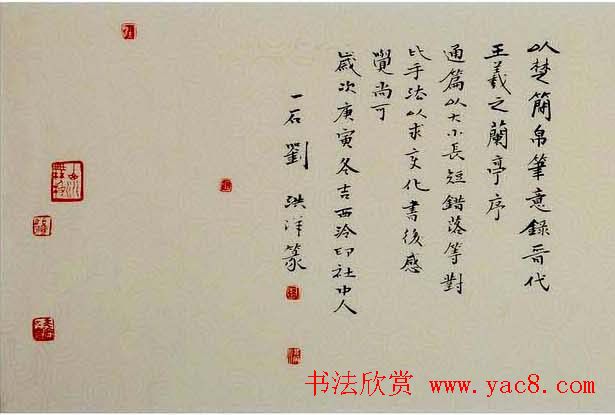 以楚簡帛筆意録晉代
王羲之蘭亭序
通篇以大小長短錯落等對
比手法以求变化書後感
覺尚可
歲次庚寅冬吉西泠印社中人
一石劉洪洋篆
书法欣赏 www.yac8.com